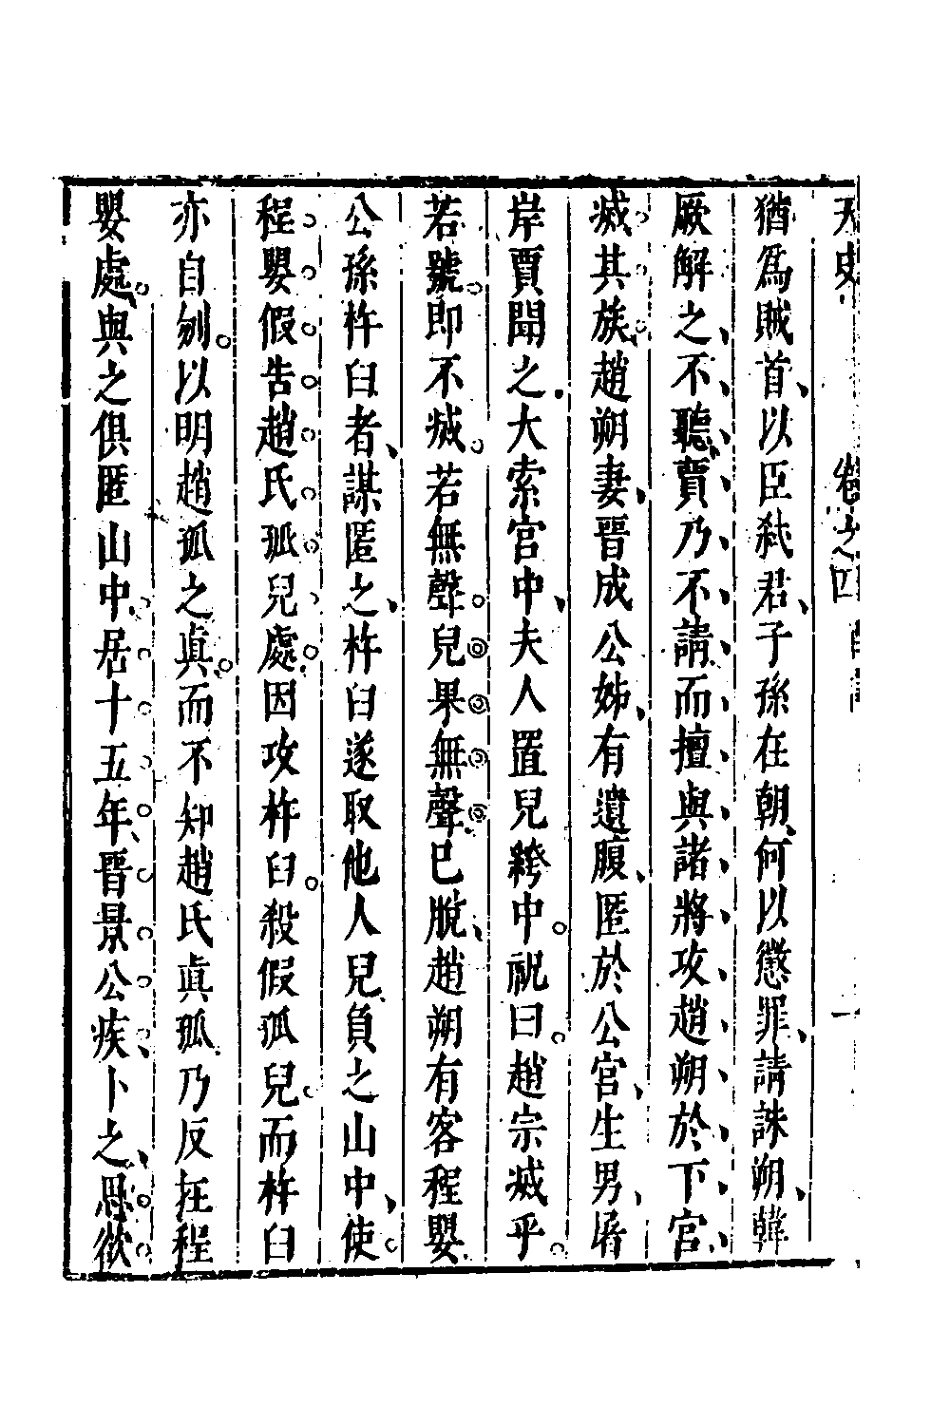 天史　卷之四　一
猶爲賊首以臣弑君子孫在朝何以懲罪請誅朔韓
厥解之不聽賈乃不請而擅與諸將攻趙朔於下宮
滅其族趙朔妻晉成公姊有遺腹匿於公宮生男屠
岸賈聞之大索宮中夫人置兒絝中祝曰趙宗滅乎
若號即不滅若無聲兒果無聲已脫趙朔有客程嬰
公孫杵臼者謀匿之杵臼遂取他人兒負之山中使
程嬰假告趙氏孤兒處因攻杵臼殺假孤兒而杵臼
亦自刎以明趙孤之眞而不知趙氏眞孤乃反在程
嬰處與之俱匿山中居十五年晉景公疾卜之思欲